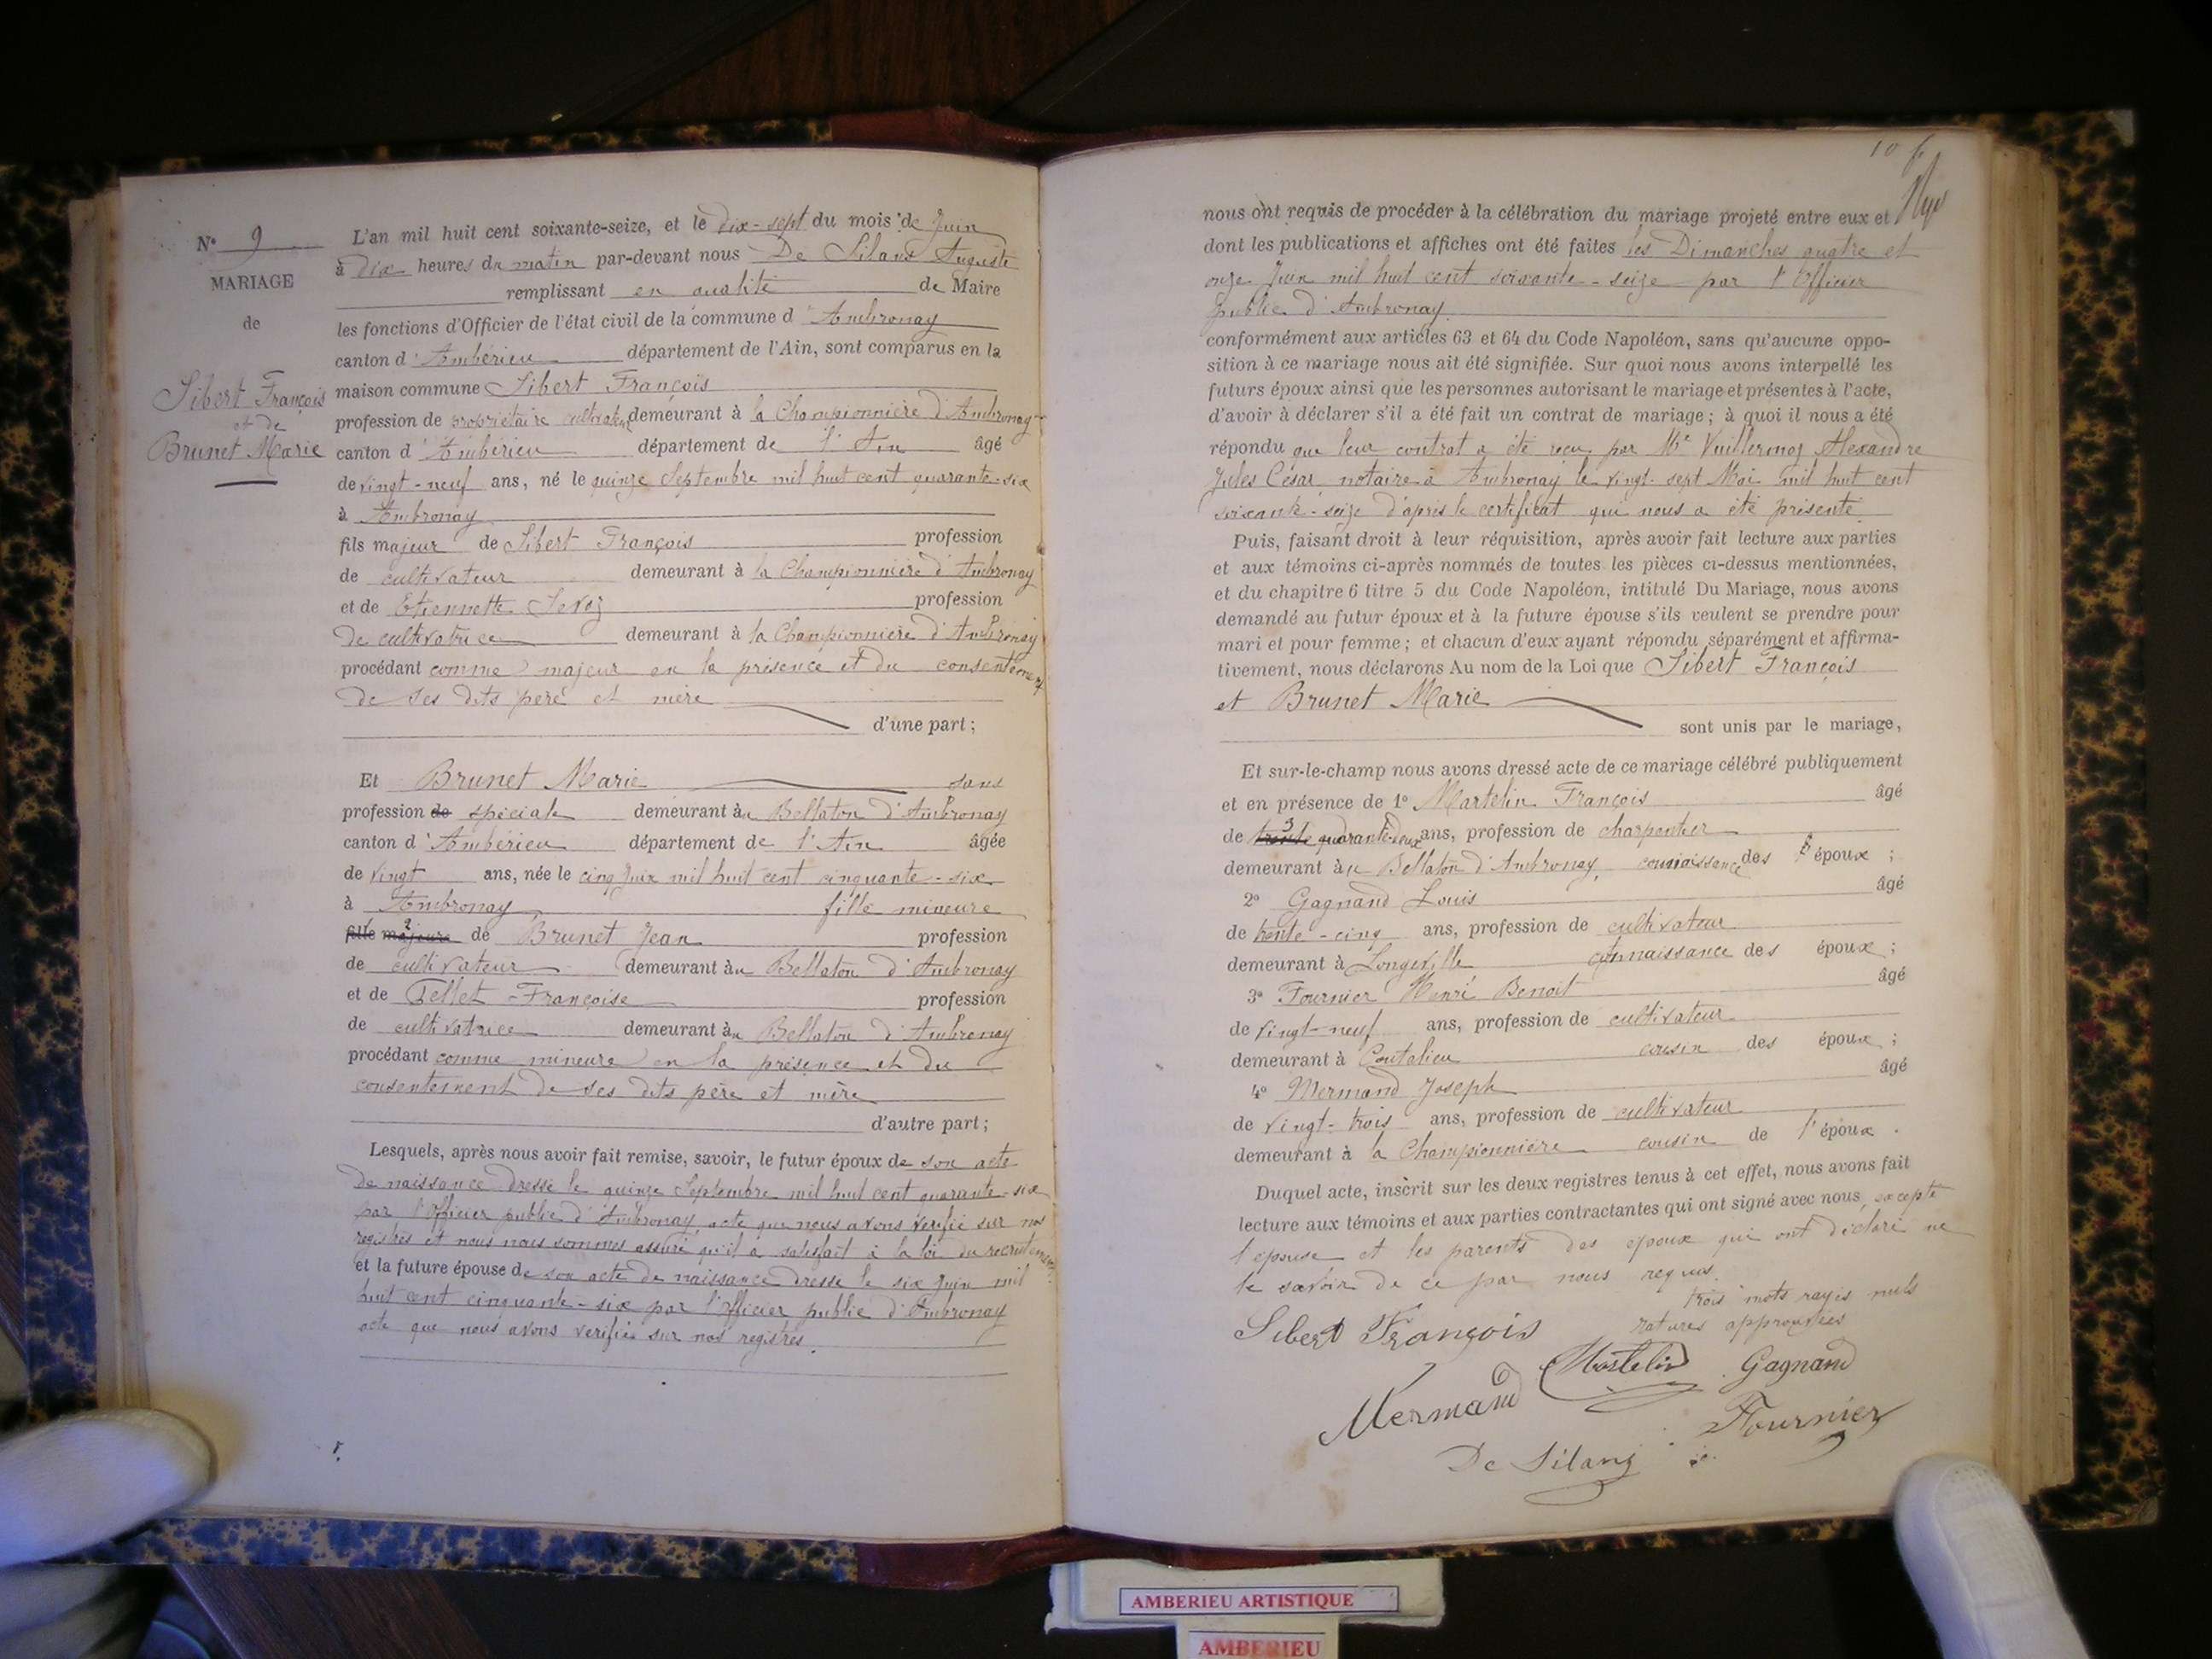 N° 9
MARIAGE
de
Sibert François
et de
Brunet Marie
L'an mil huit cent soixante-seize, et le dix-sept du mois de Juin
à dix heures du matin par-devant nous De Silans Auguste
remplissant en qualité de Maire
les fonctions d'Officier de l'état civil de la commune d'Ambronay
canton d'Ambérieu département de l'Ain, sont comparus en la
maison commune Sibert François
profession de propriétaire cultivateur demeurant à la Championnière d'Ambronay
canton d'Ambérieu département de l'Ain âgé
de vingt-neuf ans, né le quinze Septembre mil huit cent quarante-six
à Ambronay
fils majeur de Sibert François profession
de cultivateur demeurant à la Championnière d'Ambronay
et de Etiennette profession
de cultivatrice demeurant à la Championnière d'Ambronay
procédant comme majeur en la présence et du consentement
de ses dits père et mère
d'une part;
Et Brunet Marie sans
profession de spéciale demeurant au Bellaton d'Ambronay
canton d'Ambérieu département de l'Ain âgée
de vingt ans, née le cinq Juin mil huit cent cinquante-six
à Ambronay fille mineure
fille majeure de Brunet Jean profession
de cultivateur demeurant au Bellaton d'Ambronay
et de Tellet Françoise profession
de cultivatrice demeurant au Bellaton d'Ambronay
procédant comme mineure en la présence et du
consentement de ses dits père et mère
d'autre part;
Lesquels, après nous avoir fait remise, savoir, le futur époux de son acte
de naissance dressé le quinze Septembre mil huit cent quarante-six
par l'Officier public d'Ambronay, acte que nous avons vérifié sur nos
registres et nous nous sommes assuré qu'il a satisfait à la loi du recrutement
et la future épouse de son acte de naissance dressé le six Juin mil
huit cent cinquante-six par l'Officier public d'Ambronay
acte que nous avons vérifié sur nos registres.
10
nous ont requis de procéder à la célébration du mariage projeté entre eux et
dont les publications et affiches ont été faites les Dimanches quatre et
onze Juin mil huit cent soixante-seize par l'Officier
public d'Ambronay
conformément aux articles 63 et 64 du Code Napoléon, sans qu'aucune oppo-
sition à ce mariage nous ait été signifiée. Sur quoi nous avons interpellé les
futurs époux ainsi que les personnes autorisant le mariage et présentes à l'acte,
d'avoir à déclarer s'il a été fait un contrat de mariage; à quoi il nous a été
répondu que leur contrat a été reçu par Me Vuillermoz Alexandre
Jules César, notaire à Ambronay le vingt-sept Mai mil huit cent
soixante-seize d'après le certificat qui nous a été présenté.
Puis, faisant droit à leur réquisition, après avoir fait lecture aux parties
et aux témoins ci-après nommés de toutes les pièces ci-dessus mentionnées,
et du chapitre 6 titre 5 du Code Napoléon, intitulé Du Mariage, nous avons
demandé au futur époux et à la future épouse s'ils veulent se prendre pour
mari et pour femme; et chacun d'eux ayant répondu séparément et affirma-
tivement, nous déclarons Au nom de la Loi que Sibert François
et Brunet Marie
sont unis par le mariage,
Et sur-le-champ nous avons dressé acte de ce mariage célébré publiquement
et en présence de 1° Martelin François âgé
de trente quarante-deux ans, profession de charpentier
demeurant au Bellaton d'Ambronay, connaissance des époux;
2° Gagnand Louis âgé
de trente-cinq ans, profession de cultivateur
demeurant à Longeville connaissance des époux;
3° Fournier Henri Benoit âgé
de vingt-neuf ans, profession de cultivateur
demeurant à Coutelieu cousin des époux;
4° Mermand Joseph âgé
de vingt-trois ans, profession de cultivateur
demeurant à la Championnière cousin de l'époux.
Duquel acte, inscrit sur les deux registres tenus à cet effet, nous avons fait
lecture aux témoins et aux parties contractantes qui ont signé avec nous, excepté
l'épouse et les parents des époux qui ont déclaré ne
le savoir de ce par nous requis.
trois mots rayés nuls
ratures approuvées
Sibert François
Martelin Gagnand
Mermand
Fournier
De Silans
AMBERIEU ARTISTIQUE
AMBERIEU